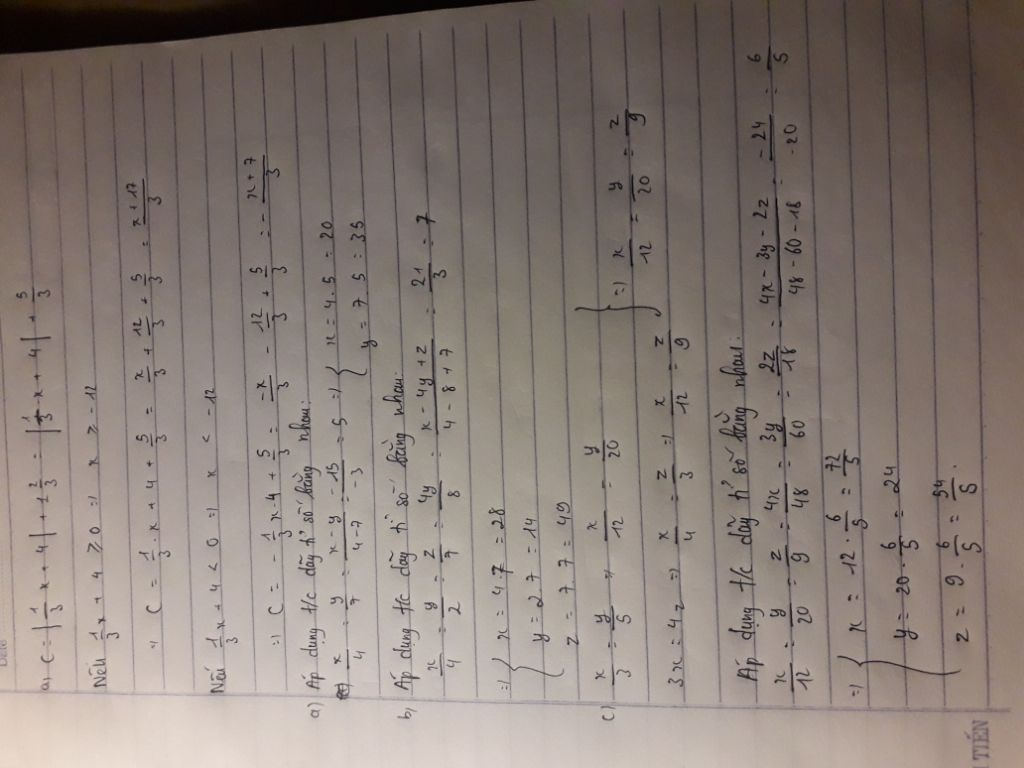 Date
a, C = |1/3 x + 4| + 1 2/3 = |1/3 x + 4| + 5/3
Nếu 1/3 x + 4 ≥ 0 => x ≥ -12
=> C = 1/3 . x + 4 + 5/3 = x/3 + 12/3 + 5/3 = x + 17/3
Nếu 1/3 x + 4 < 0 => x < -12
=> C = - 1/3 x - 4 + 5/3 = -x/3 - 12/3 + 5/3 = - x + 7/3
a) Áp dụng t/c dãy tỉ số bằng nhau:
x/4 = y/7 = x - y/4 - 7 = -15/-3 = 5 => { x = 4. 5 = 20
y = 7 5 = 35
b, Áp dụng t/c dãy tỉ số bằng nhau:
x/4 = y/2 = z/7 = 4y/8 = x - 4y + z/4 - 8 + 7 = 21/3 = 7
=> { x = 4.7 = 28
y = 2 7 = 14
z = 7 7 = 49
c) x/3 = y/5 => x/12 = y/20
3x = 4z => x/4 = z/3 => x/12 = z/9 } => x/12 = y/20 = z/9
Áp dụng t/c dãy tỉ số bằng nhau:
x/12 = y/20 = z/9 = 4x/48 = 3y/60 = 2z/18 = 4x - 3y - 2z/48 - 60 - 18 = -24/-20 = 6/5
=> { x = 12 . 6/5 = 72/5
y = 20 . 6/5 = 24
z = 9 . 6/5 = 54/5 .
TIẾN